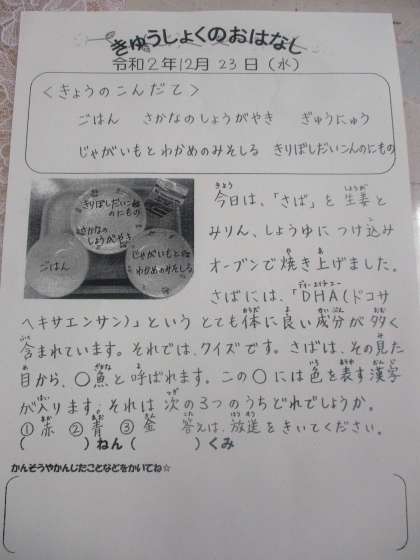 きゅうしょくのおはなし
令和2年12月 23日(水)
<きょうのこんだて>
ごはん さかなのしょうがやき ぎゅうにゅう
じゃがいもとわかめのみそしる きりぼしだいこんのにもの
きりぼしだいこんのにもの
さかなのしょうがやき
ごはん
じゃがいもとわかめのみそしる
今日は、「さば」を生姜と
みりん、しょうゆにつけ込み
オーブンで焼き上げました。
さばには、「DHA(ドコサ
ヘキサエンサン)」というとても体に良い成分が多く
含まれています。それでは、クイズです。さばは、その見た
目から、〇魚と呼ばれます。この〇には色を表す漢字
が入ります。それは次の3つのうちどれでしょうか。
①赤 ②青 ③金 答えは、放送をきいてください。
( )ねん( )くみ
かんそうやかんじたことなどをかいてね☆